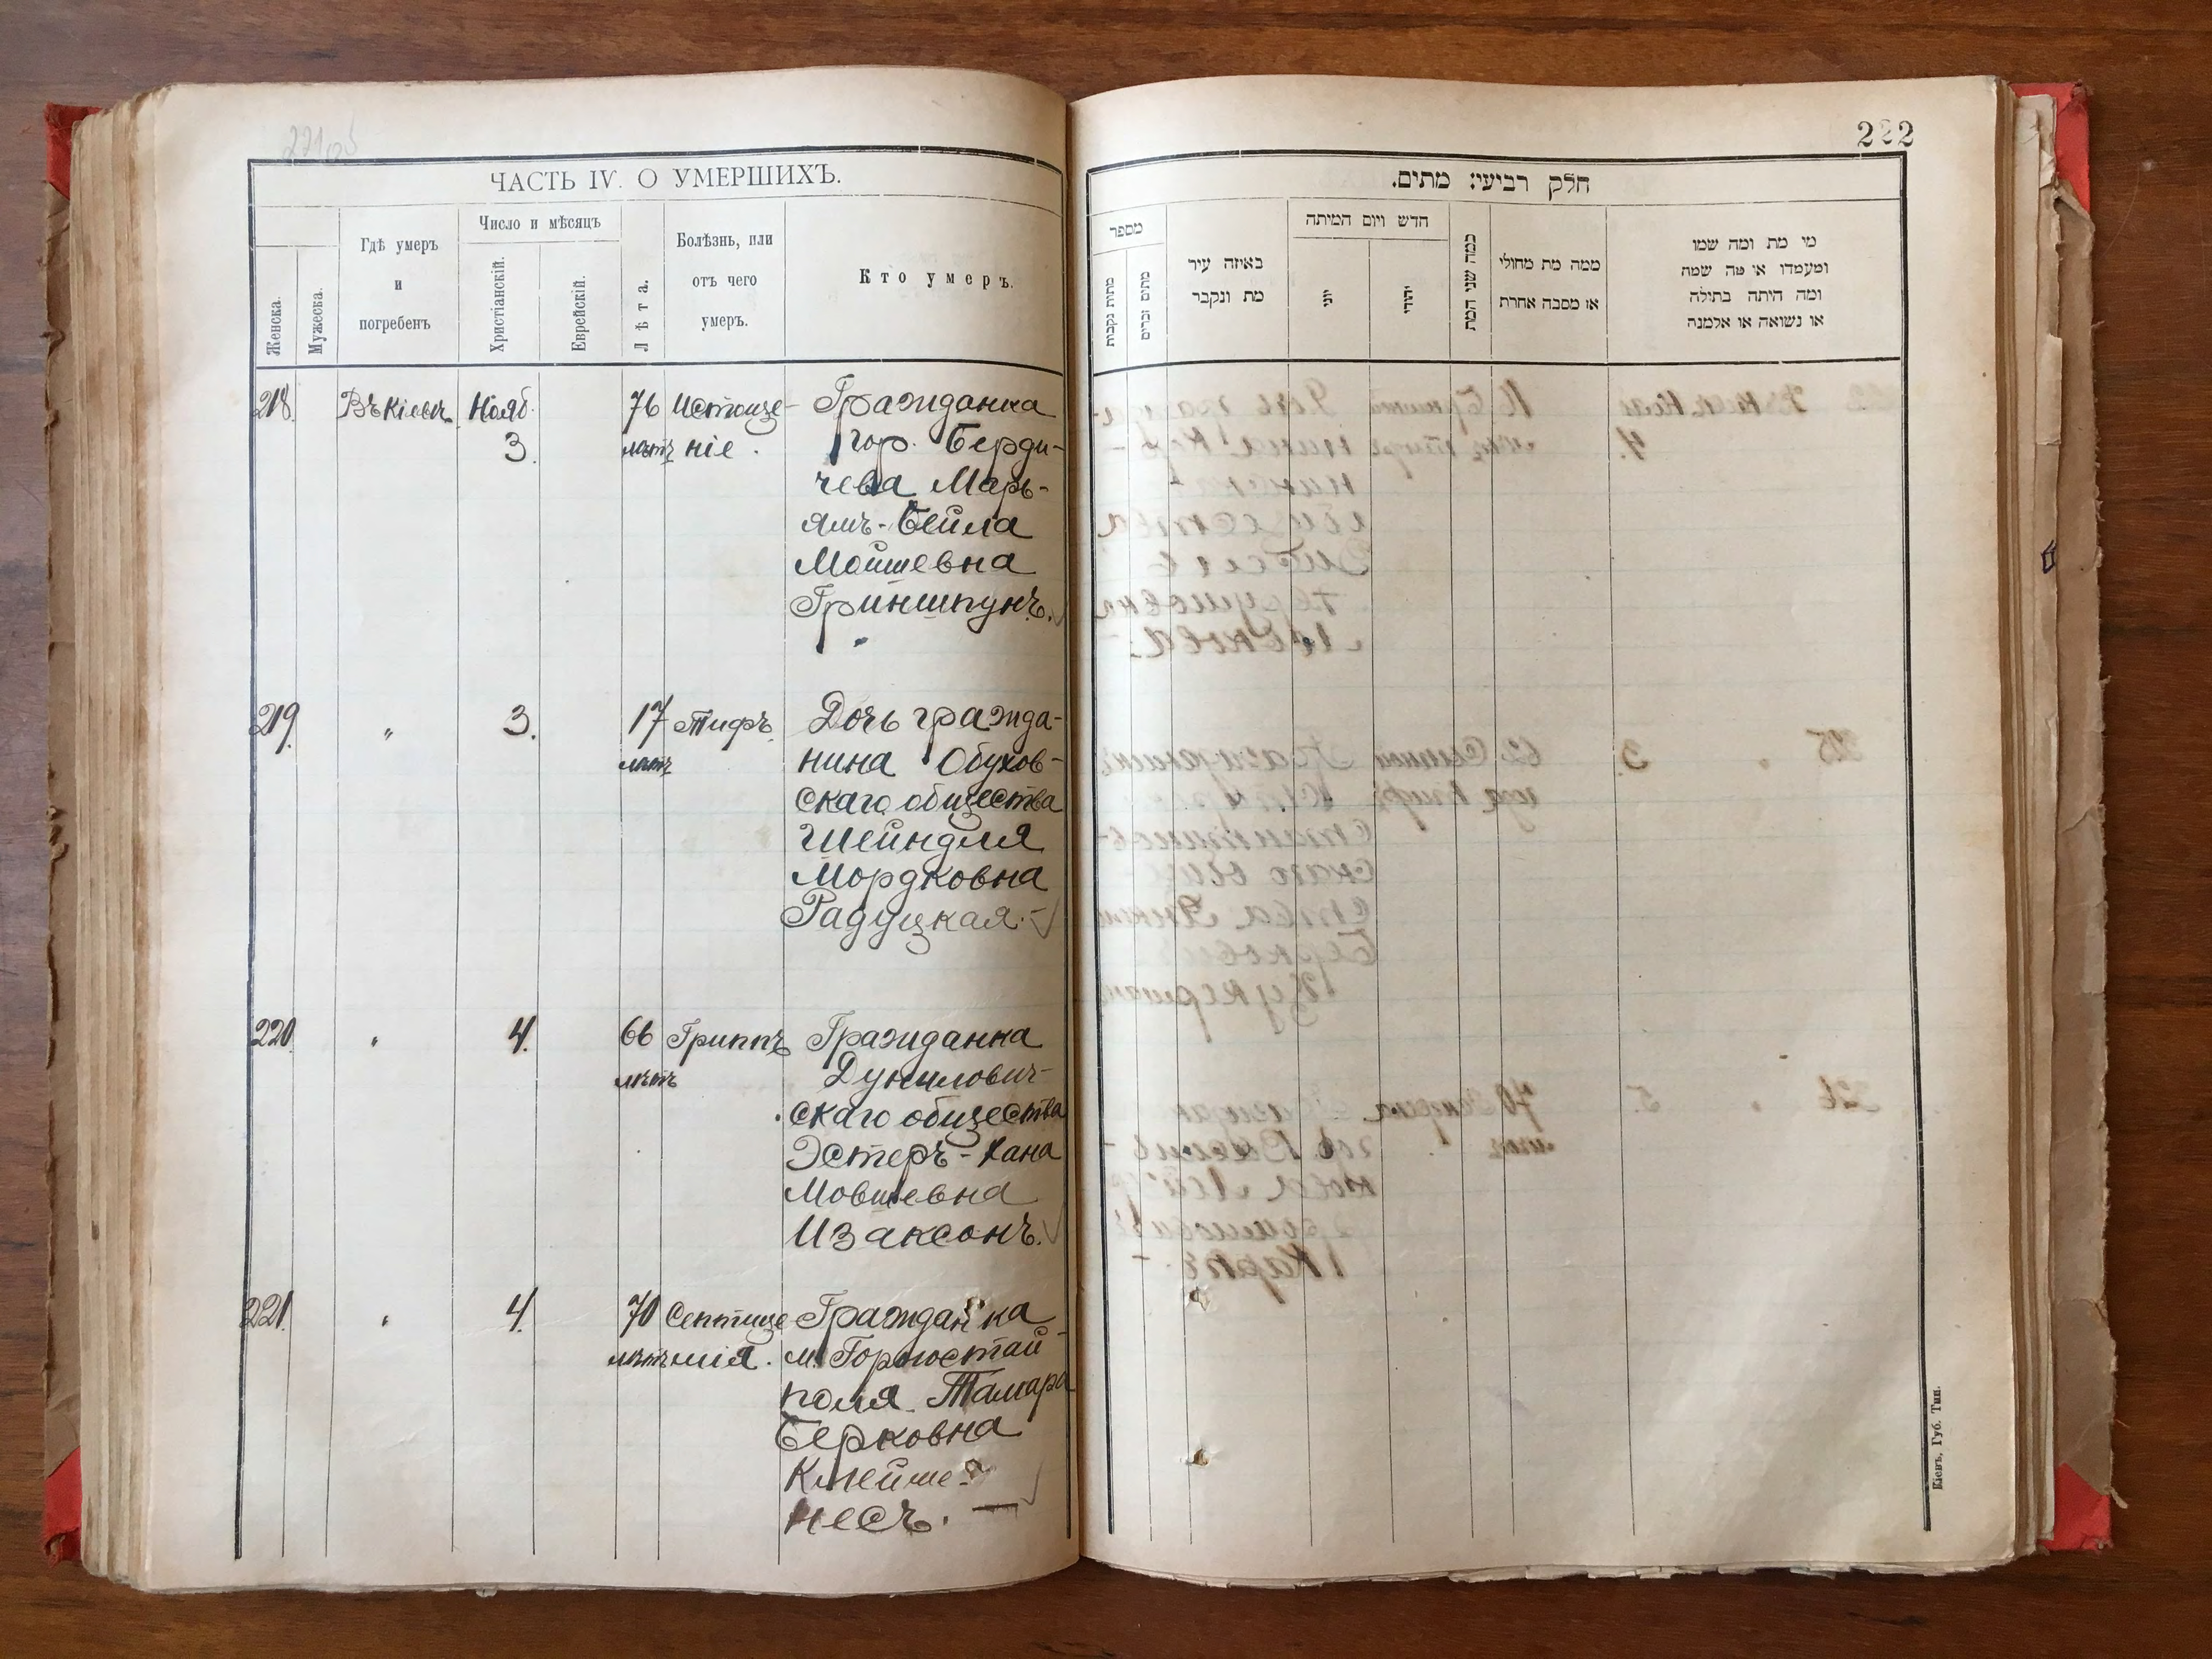 221об
ЧАСТЬ IV. О УМЕРШИХЪ.
Женска.
Мужеска.
Гдѣ умеръ
и
погребенъ
Число и мѣсяцъ
Христіанскій.
Еврейскій.
Лѣта.
Болѣзнь, или
отъ чего
умеръ.
Кто умеръ.
218. Въ Кіевѣ Нояб. 76 Истоще- Гражданка
3. лѣтъ ніе. гор. Берди-
чева Марь-
ямъ-Бейла
Мошевна
Гриншпунъ.
219. " 3. 17 Тифъ. Дочь гражда-
лѣтъ нина Обухов-
скаго общества
Шейндля
Мордковна
Радуцкая.-
220. " 4. 66 Гриппъ Гражданка
лѣтъ Дунилович-
скаго общества
Эстеръ-Хана
Мовшевна
Изаксонъ.
221. " 4. 70 Септице Гражданка
лѣтъ мія. м. Горностай
поля Тамара
Берковна
Клейше-
несъ. —
222
חלק רביעי: מתים.
מספר
מתות נקבות
מתים זכרים
באיזה עיר
מת ונקבר
חדש ויום המיתה
יוני
יהודי
כמה שני המת
ממה מת מחולי
או מסבה אחרת
מי מת ומה שמו
ומעמדו או מה שמה
ומה היתה בתולה
או נשואה או אלמנה
Кіевъ, Губ. Тип.